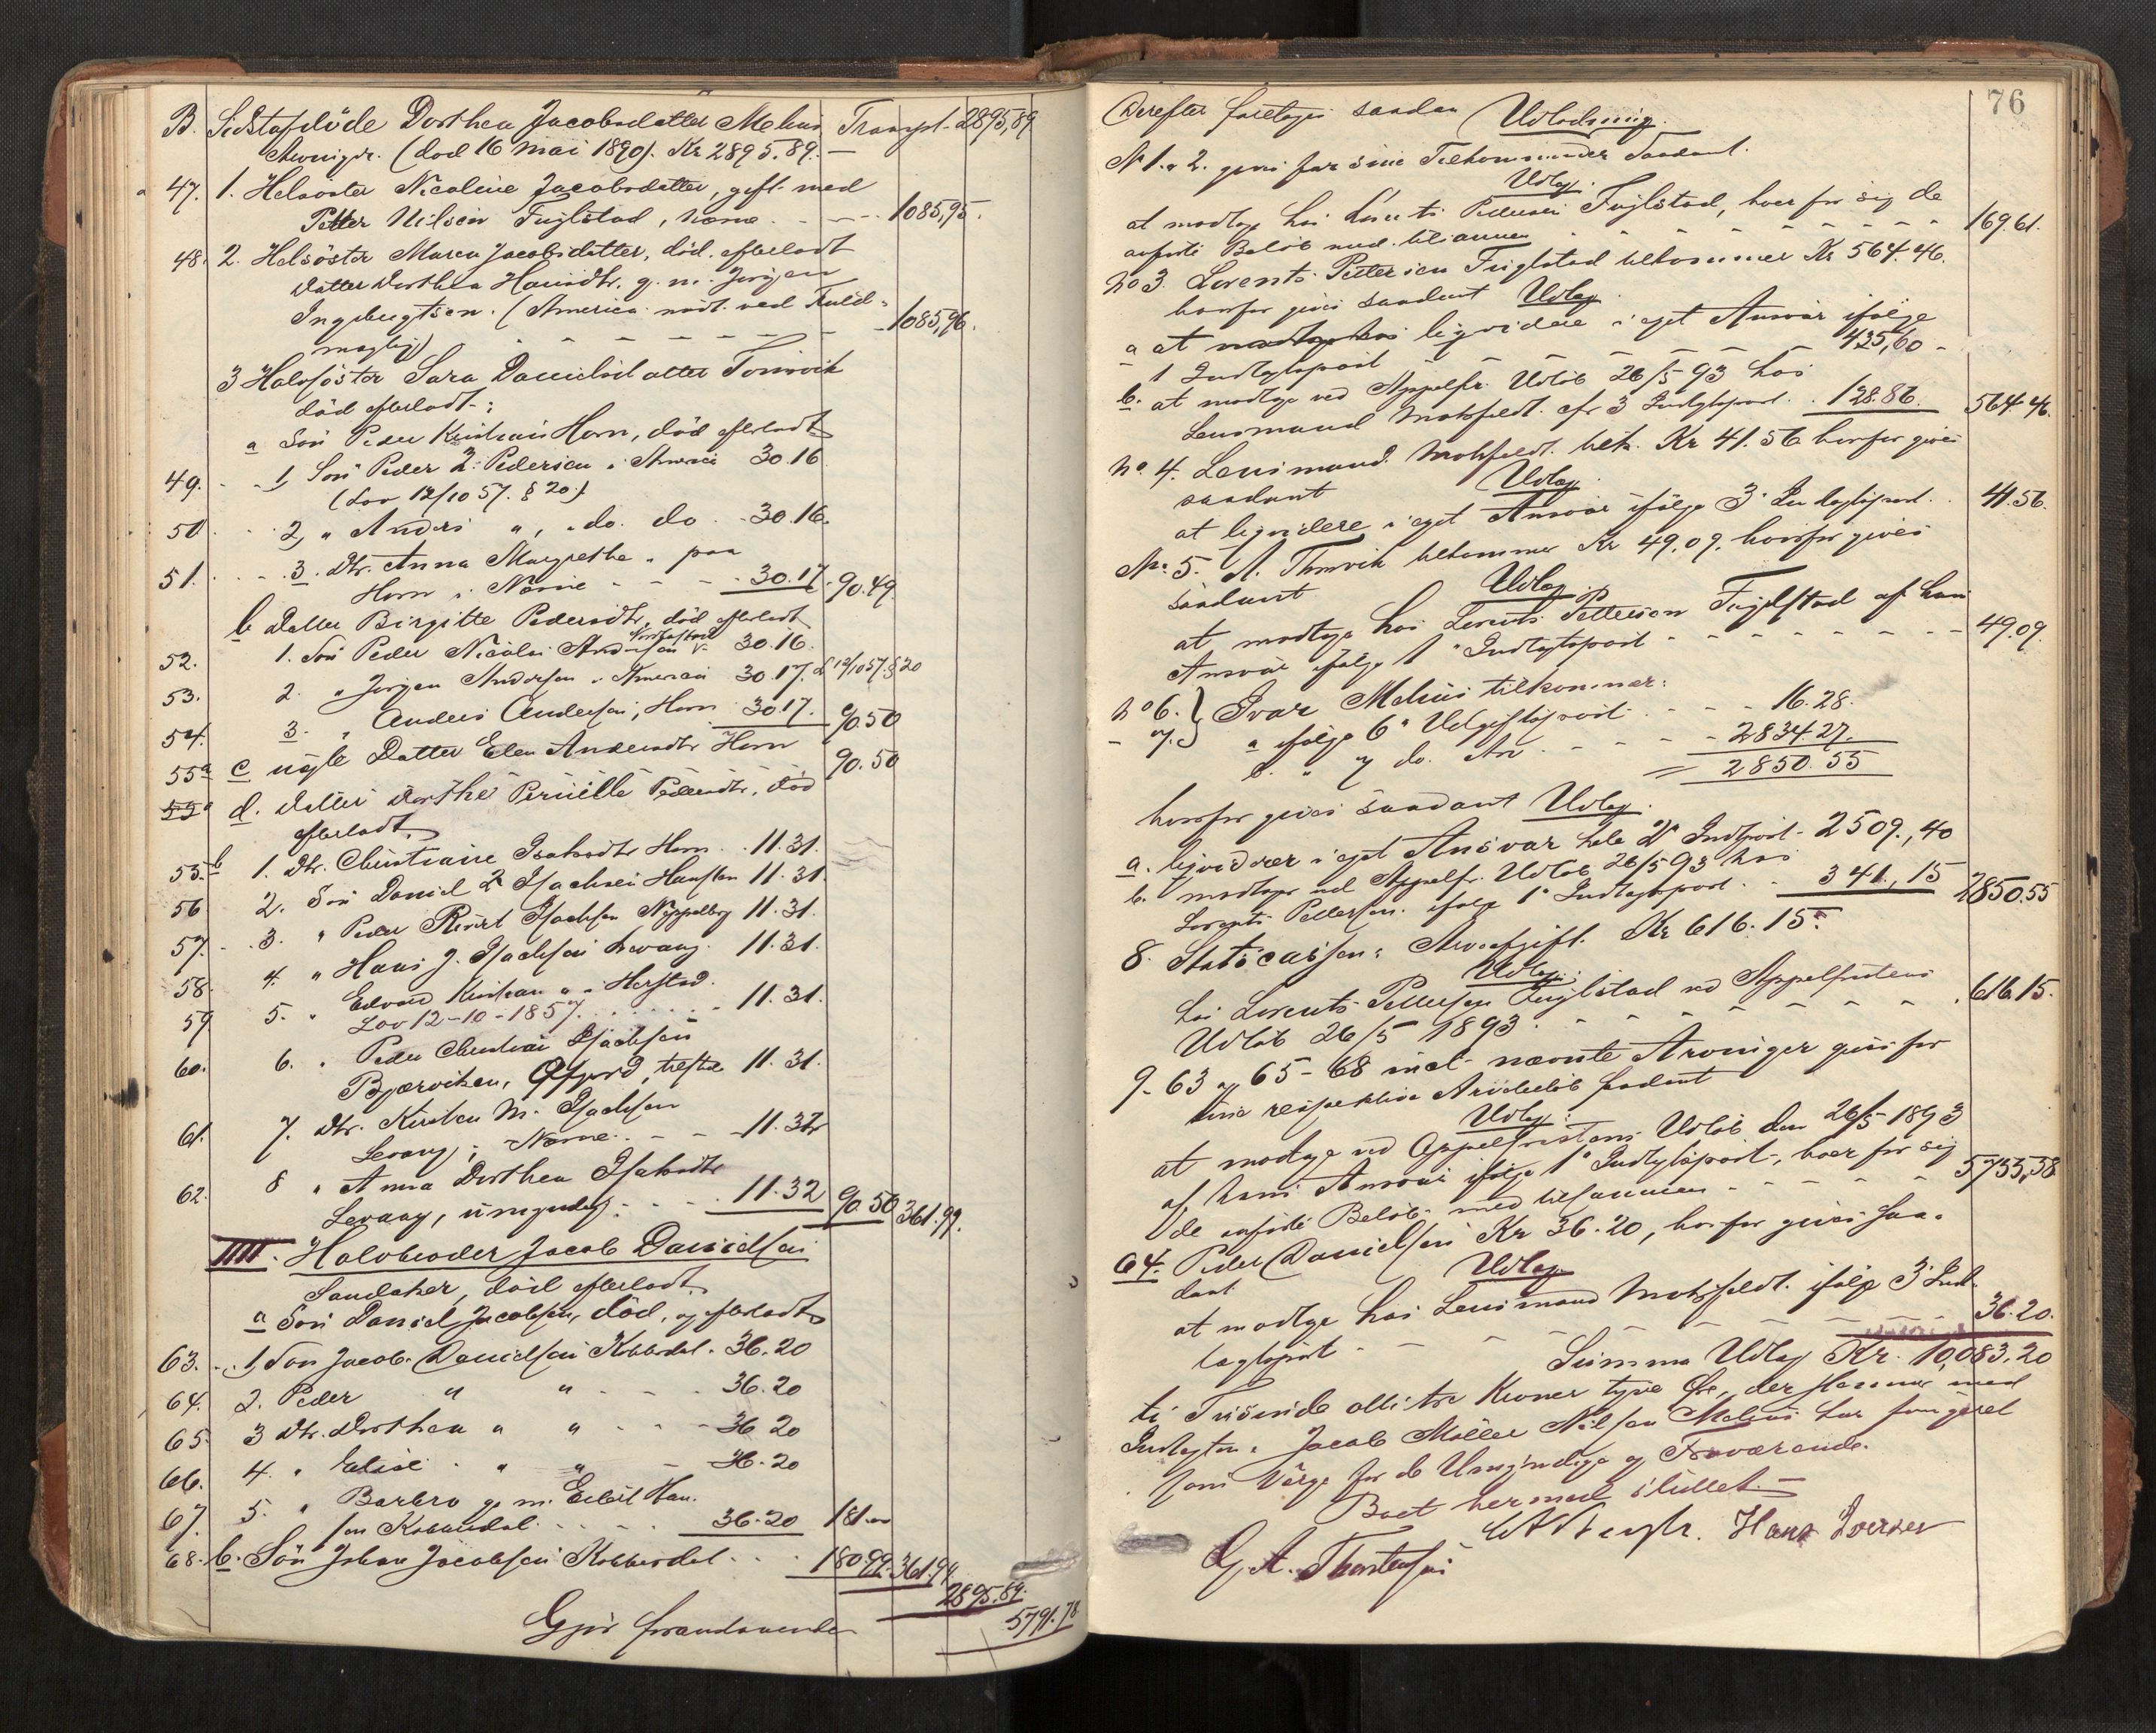 B. Sidstafdöde Dorthea Jacobsdatter Melnes Transpt. 2895,89
Arvinger. (död 16 mai 1890). Kr 2895.89. —
47. 1. Helsöster Nicoline Jacobsdatter, gift med
Petter Nilsen Fuglstad, Næsne - - - 1085,95.
48. 2. Helsöster Maren Jacobsdatter, död. efterladt
Datter Dorthea Hansdtr. g. m. Jörgen
Ingebrigtsen. (America mödt. ved Fuld-
mægtig) - - - - - - - 1085,96.
3 Halvsöster Sara Danielsdatter Tomvik
död efterladt:
a Sön Peder Kristian Horn, död efterladt
49. - 1, Sön Peder Z. Pedersen i America 30.16
(Lov 12/10 57. § 20.)
50 2, " Anders ", do. do. - 30.16.
51. 3. Dtr. Anna Margrethe " paa
Horn i Næsne - - - 30.17. 90.49
b Datter Birgitte Pedersdtr, död efterladt
52. 1. Sön Peder Nicolai Andersen 30.16.
53. 2. " Jörgen Andersen i America 30.17. L 12/10 57. § 20
54. 3. " Anders Andersen, Horn 30.17. 90.50
55a c ugft Datter Elen Andersdtr Horn 90.50
55 d. Datter Dorthe Pernille Pedersdtr, död
efterladt
55.b 1. Dtr. Christiane Isaksdtr Horn . . 11.31.
56 2. Sön Daniel Z Isachsen 11.31.
57. 3. " Peder Isachsen 11.31.
58. 4. " Hans J. Isachsen Levang. 11.31.
59 5. " Edvard Kristian " i Herstad.
Lov 12-10-1857. . . . . . 11.31.
60. 6. " Peder Christian Isachsen
Bjærviken, 11.31.
61. 7. Dtr. Kirsten M. Isachsen
Levang i Næsne. - - - 11.32
62. 8 " Anna Dorthea Isaksdtr
Levang, umyndig. - - - 11.32 90.50 361.99.
IIII. Halvbroder Jacob Danielsen
Sandaker, död efterladt
a Sön Daniel Jacobsen, död, og efterladt
63. 1, Sön Jacob Danielsen Kobberdal. 36.20
64. 2. Peder " " - - - 36.20
65. 3 Dtr. Dorthea " " - - - 36 20
66. 4. " Elise " " - 36.20
67. 5. " Barbro g. m. Han-
sen Kobberdal. - - - 36.20 181.00
68. b. Sön Johan Jacobsen Kobberdal - - 180.99. 361.99.
2895.89.
Gjör foranstaaende 5791.78
76
Derefter foretoges saadan Udlodning.
No 1. & 2. gives for sine Tilkommender saadant
Udlæg.
at modtage hos Lorents Pettersen Fuglstad, hver for sig de
anförte Beløb med tilsammen - - - - - 169.61.
No 3. Lorents Pettersen Fuglstad tilkommer Kr 564.46.
hvorfor gives saadant Udlæg.
a at modtage hos liqvidere i eget Ansvar ifølge
1 Indtægtspost - - - - - 435,60 -
b. at modtage ved Appelfr. Udlöb 26/5 93 hos
Lensmand Mohrfeldt. efr 3 Indtægtspost. . 128.86. 564.46.
No. 4. Lensmand Mohrfeldt. tilk. Kr 41.56 hvorfor gives
saadant Udlæg.
at liqvidere i eget Ansvar ifölge 3. Indtægtspost. . 41.56.
No. 5. A. Thomvik tilkommer Kr 49.09. hvorfor gives
saadant Udlæg.
at modtage hos Lorents Pettersen Fuglstad af hans
Ansvar ifölge 1. Indtægtspost - - - - - 49.09.
No 6. } Ivar Melnes tilkommer:
- 7. } a ifölge 6. Udgiftspost . - - - 16.28.
b. " 7 do. Arv - - - - 2834.27.
= 2850.55
hvorfor gives saadant Udlæg.
a. liqviderer i eget Ansvar hele 2. Indtpost - 2509.,40
b. modtager ved Appelfr. Udlöb 26/5 93 hos
Lorents Pettersen. ifölge 1. Indtægtspost. . 341.,15 2850.55
8. Statscassen: Arveafgift. Kr 616.15.
Udlæg.
hos Lorents Pettersen Fuglstad ved Appelfristens
Udlöb 26/5 1893. - - - - - - 616.15.
9 - 63 og 65 - 68 incl. nævnte Arvinger gives for
sine respektive Arvebelöb saadant
Udlæg:
at modtage ved Appelfristens Udlöb den 26/5 1893
af hans Ansvar ifölge 1. Indtægtspost, hver for sig
de anförte Belöb med tilsammen - - - - - 5755,58
64. Peder Danielsen Kr 36.20, hvorfor gives saa-
dant Udlæg
at modtage hos Lensmand Mohrfeldt. ifölge 3. Ind-
tægtspost - - - - - - - 36.20.
Summa Udlæg Kr. 10,083,20
ti Tusinde otti tre Kroner tyve Öre, der stemmer med
Indtægten. Jacob Möller Nilsen Melnes har fungeret
som Værge for de Umyndige og Fraværende.
Boet hermed sluttet. —
Hans Iversen
G. A. Thorstensen